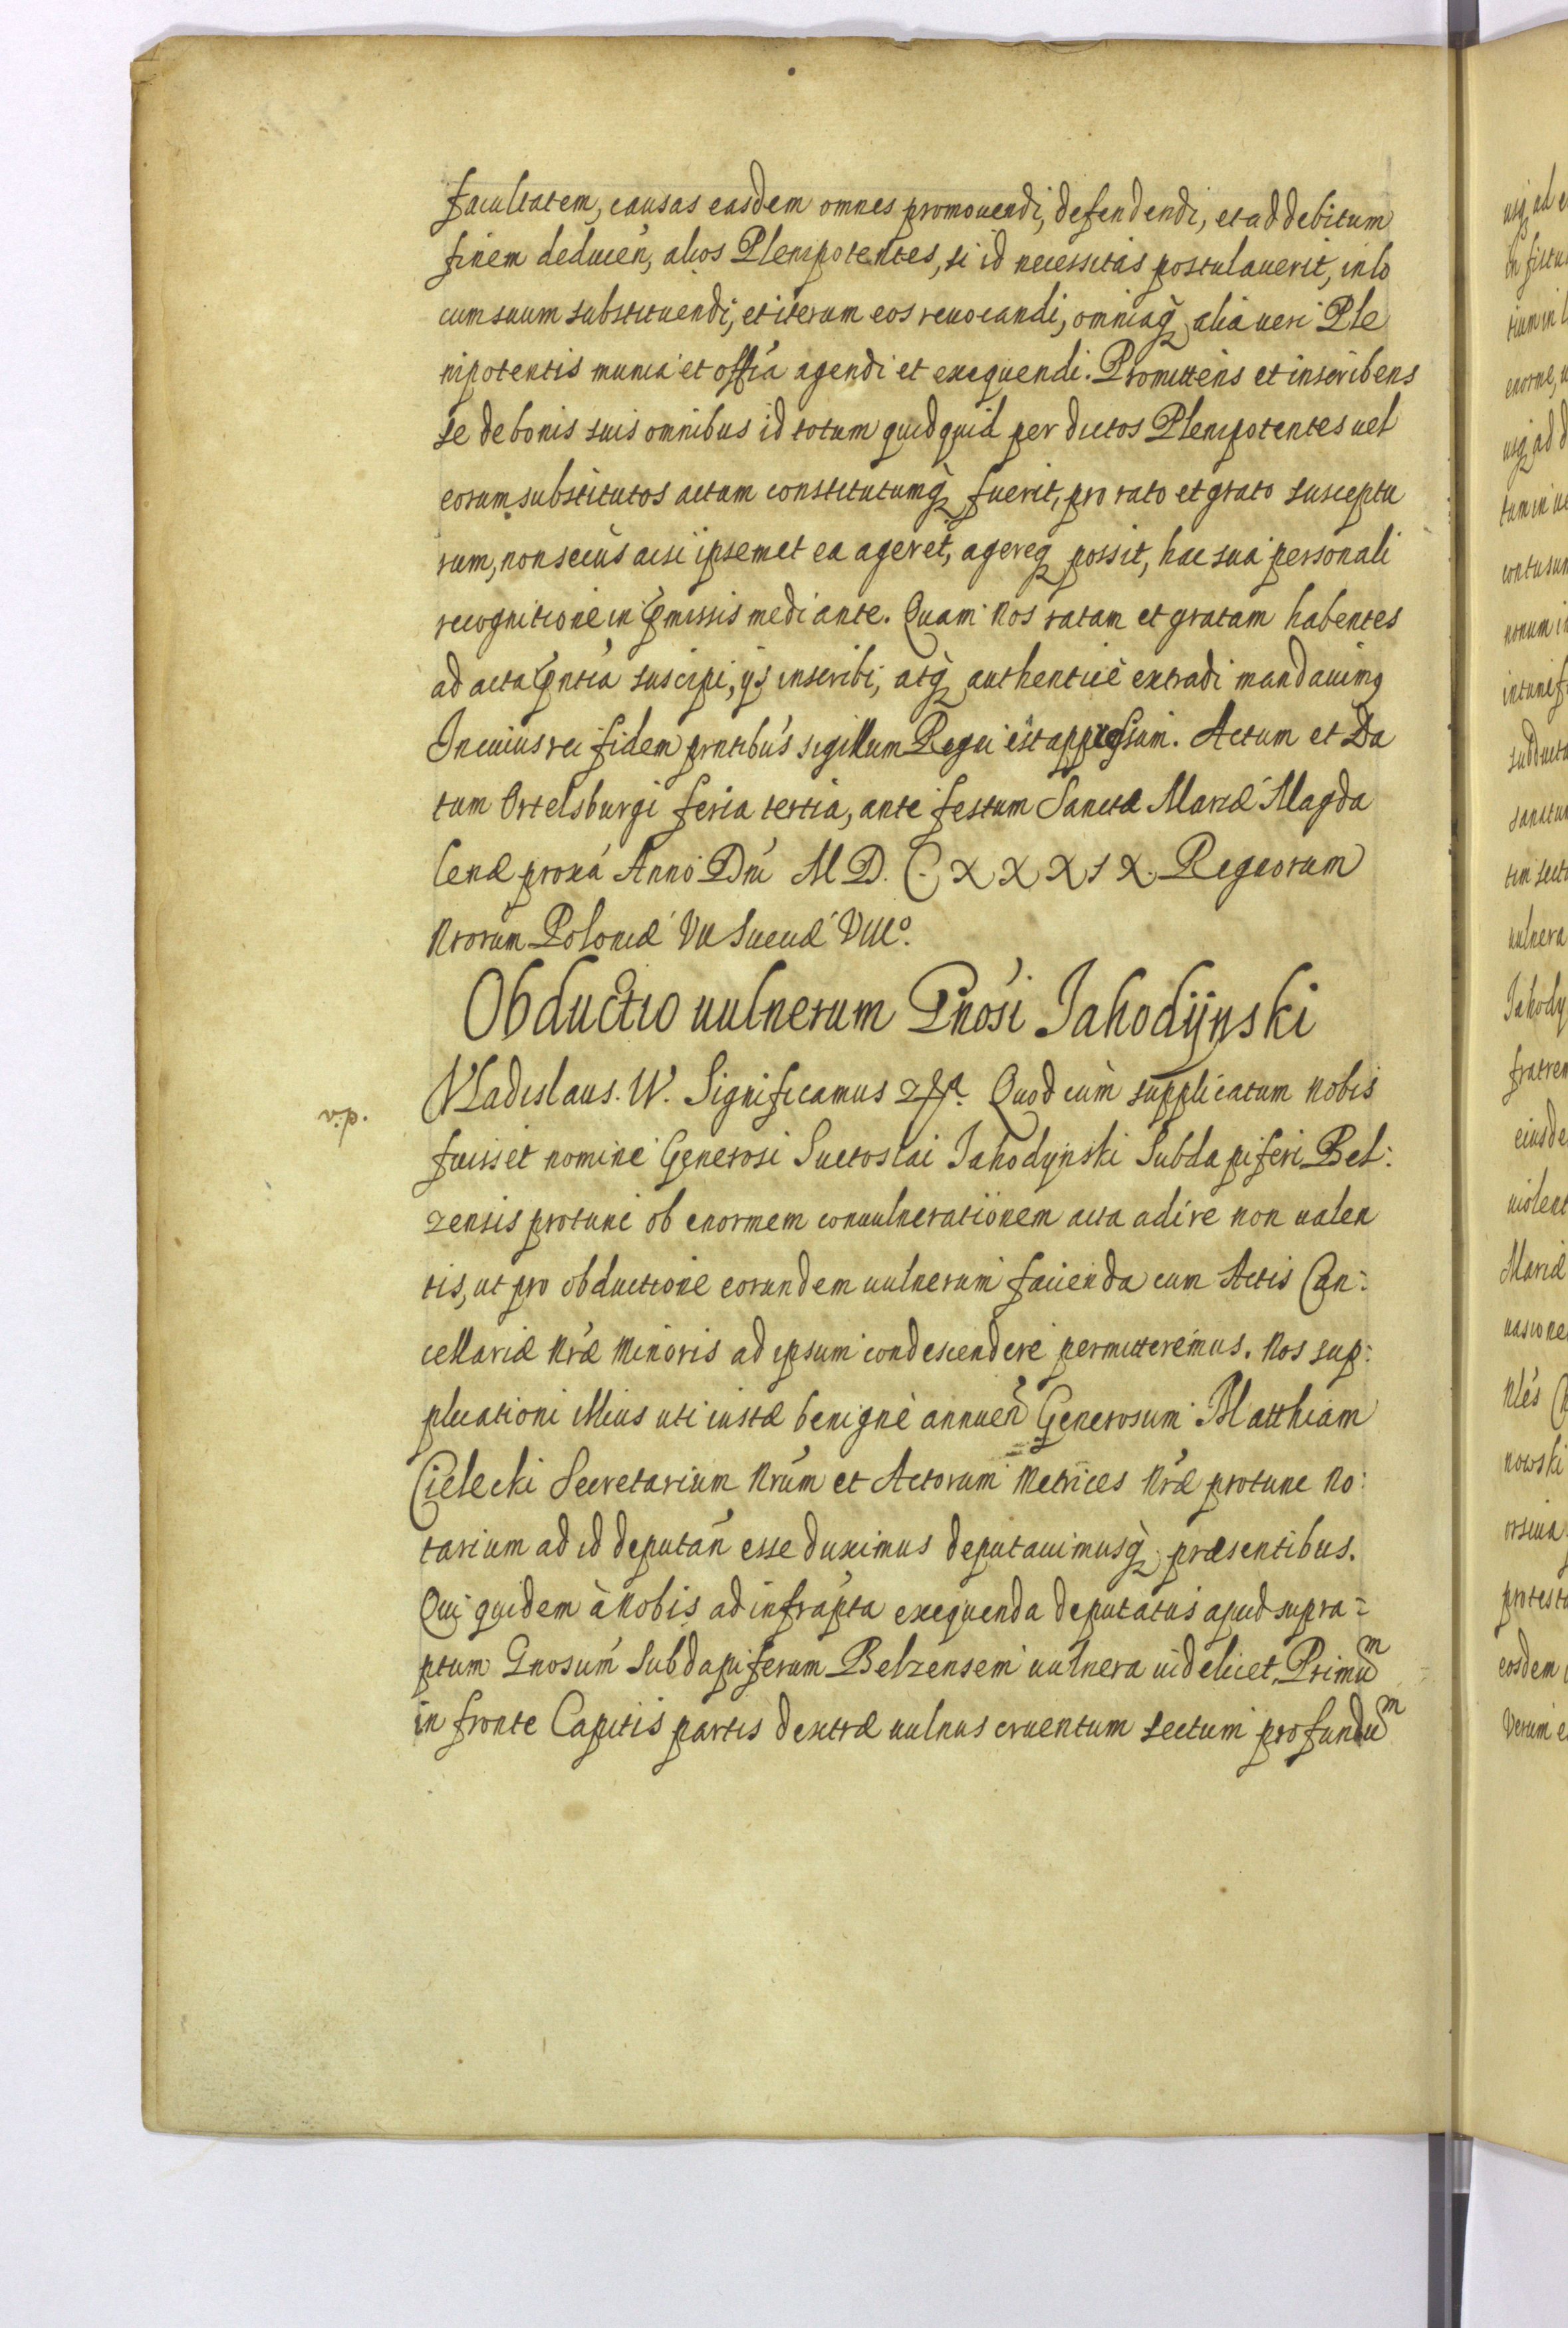 facultatem, causas easdem omnes promouendi, defendendi, et ad debitum
finem deducen, alios Plenipotentes, si id necessitas postulauerit, in lo
cum suum substituendi, et iterum eos reuocandi, omniaq alia ueri Ple
nipotentis munia et offia agendi et exequendi. Promittens et inscribens
se de bonis suis omnibus id totum quidquid per dictos Plenipotentes uel
eorum substitutos actum constitutumq fuerit, pro rato et grato susceptu
rum, non secus acsi ipsemet ea ageret, agereq possit, hac sua personali
recognitione in pmissis mediante. Quam Nos ratam et gratam habentes
ad acta pntia suscipi, ijs inscribi, atq authentice extradi mandauimq
In cuius rei fidem pntibus sigillum Regni est appressum. Actum et Da
tum Ortelsburgi feria tertia, ante festum Sanctæ Mariæ Magda
lenæ proxa Anno Dni M D. C. X X X I X. Regnorum
Nrorum Poloniæ VII Sueciæ VIIIo.
Obductio uulnerum Gnosi Jahodijnski
Vladislaus. IV. Significamus Quod cùm supplicatum nobis
.div
fuisset nomine Generosi Suetoslai Jahodynski Subdapiferi Bel:
zensis protunc ob enormem conuulnerationem acta adire non ualen
tis, ut pro obductione eorundem uulnerum facienda cum Actis Can:
cellariæ Nræ Minoris ad ipsum condescendere permitteremus. Nos sup:
plicationi illius uti iustæ benignè annuen Generosum Matthiam
Cielecki Secretarium Nrum et Actorum Metrices Nræ protunc No:
tarium ad id deputan esse duximus deputauimusq præsentibus.
Qui quidem à Nobis ad infrapta exequenda deputatus apud supra=
ptum Gnosum Subdapiferum Belzensem uulnera uidelicet Primum
in fronte Capitis partis dextræ uulnus cruentum sectum profundum